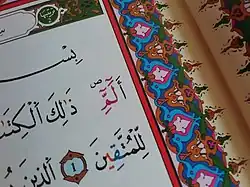 بِسْ
الٓمٓ ذَٰلِكَ ٱلْكِتَـٰ
لِّلْمُتَّقِينَ ١ ٱلَّذِينَ